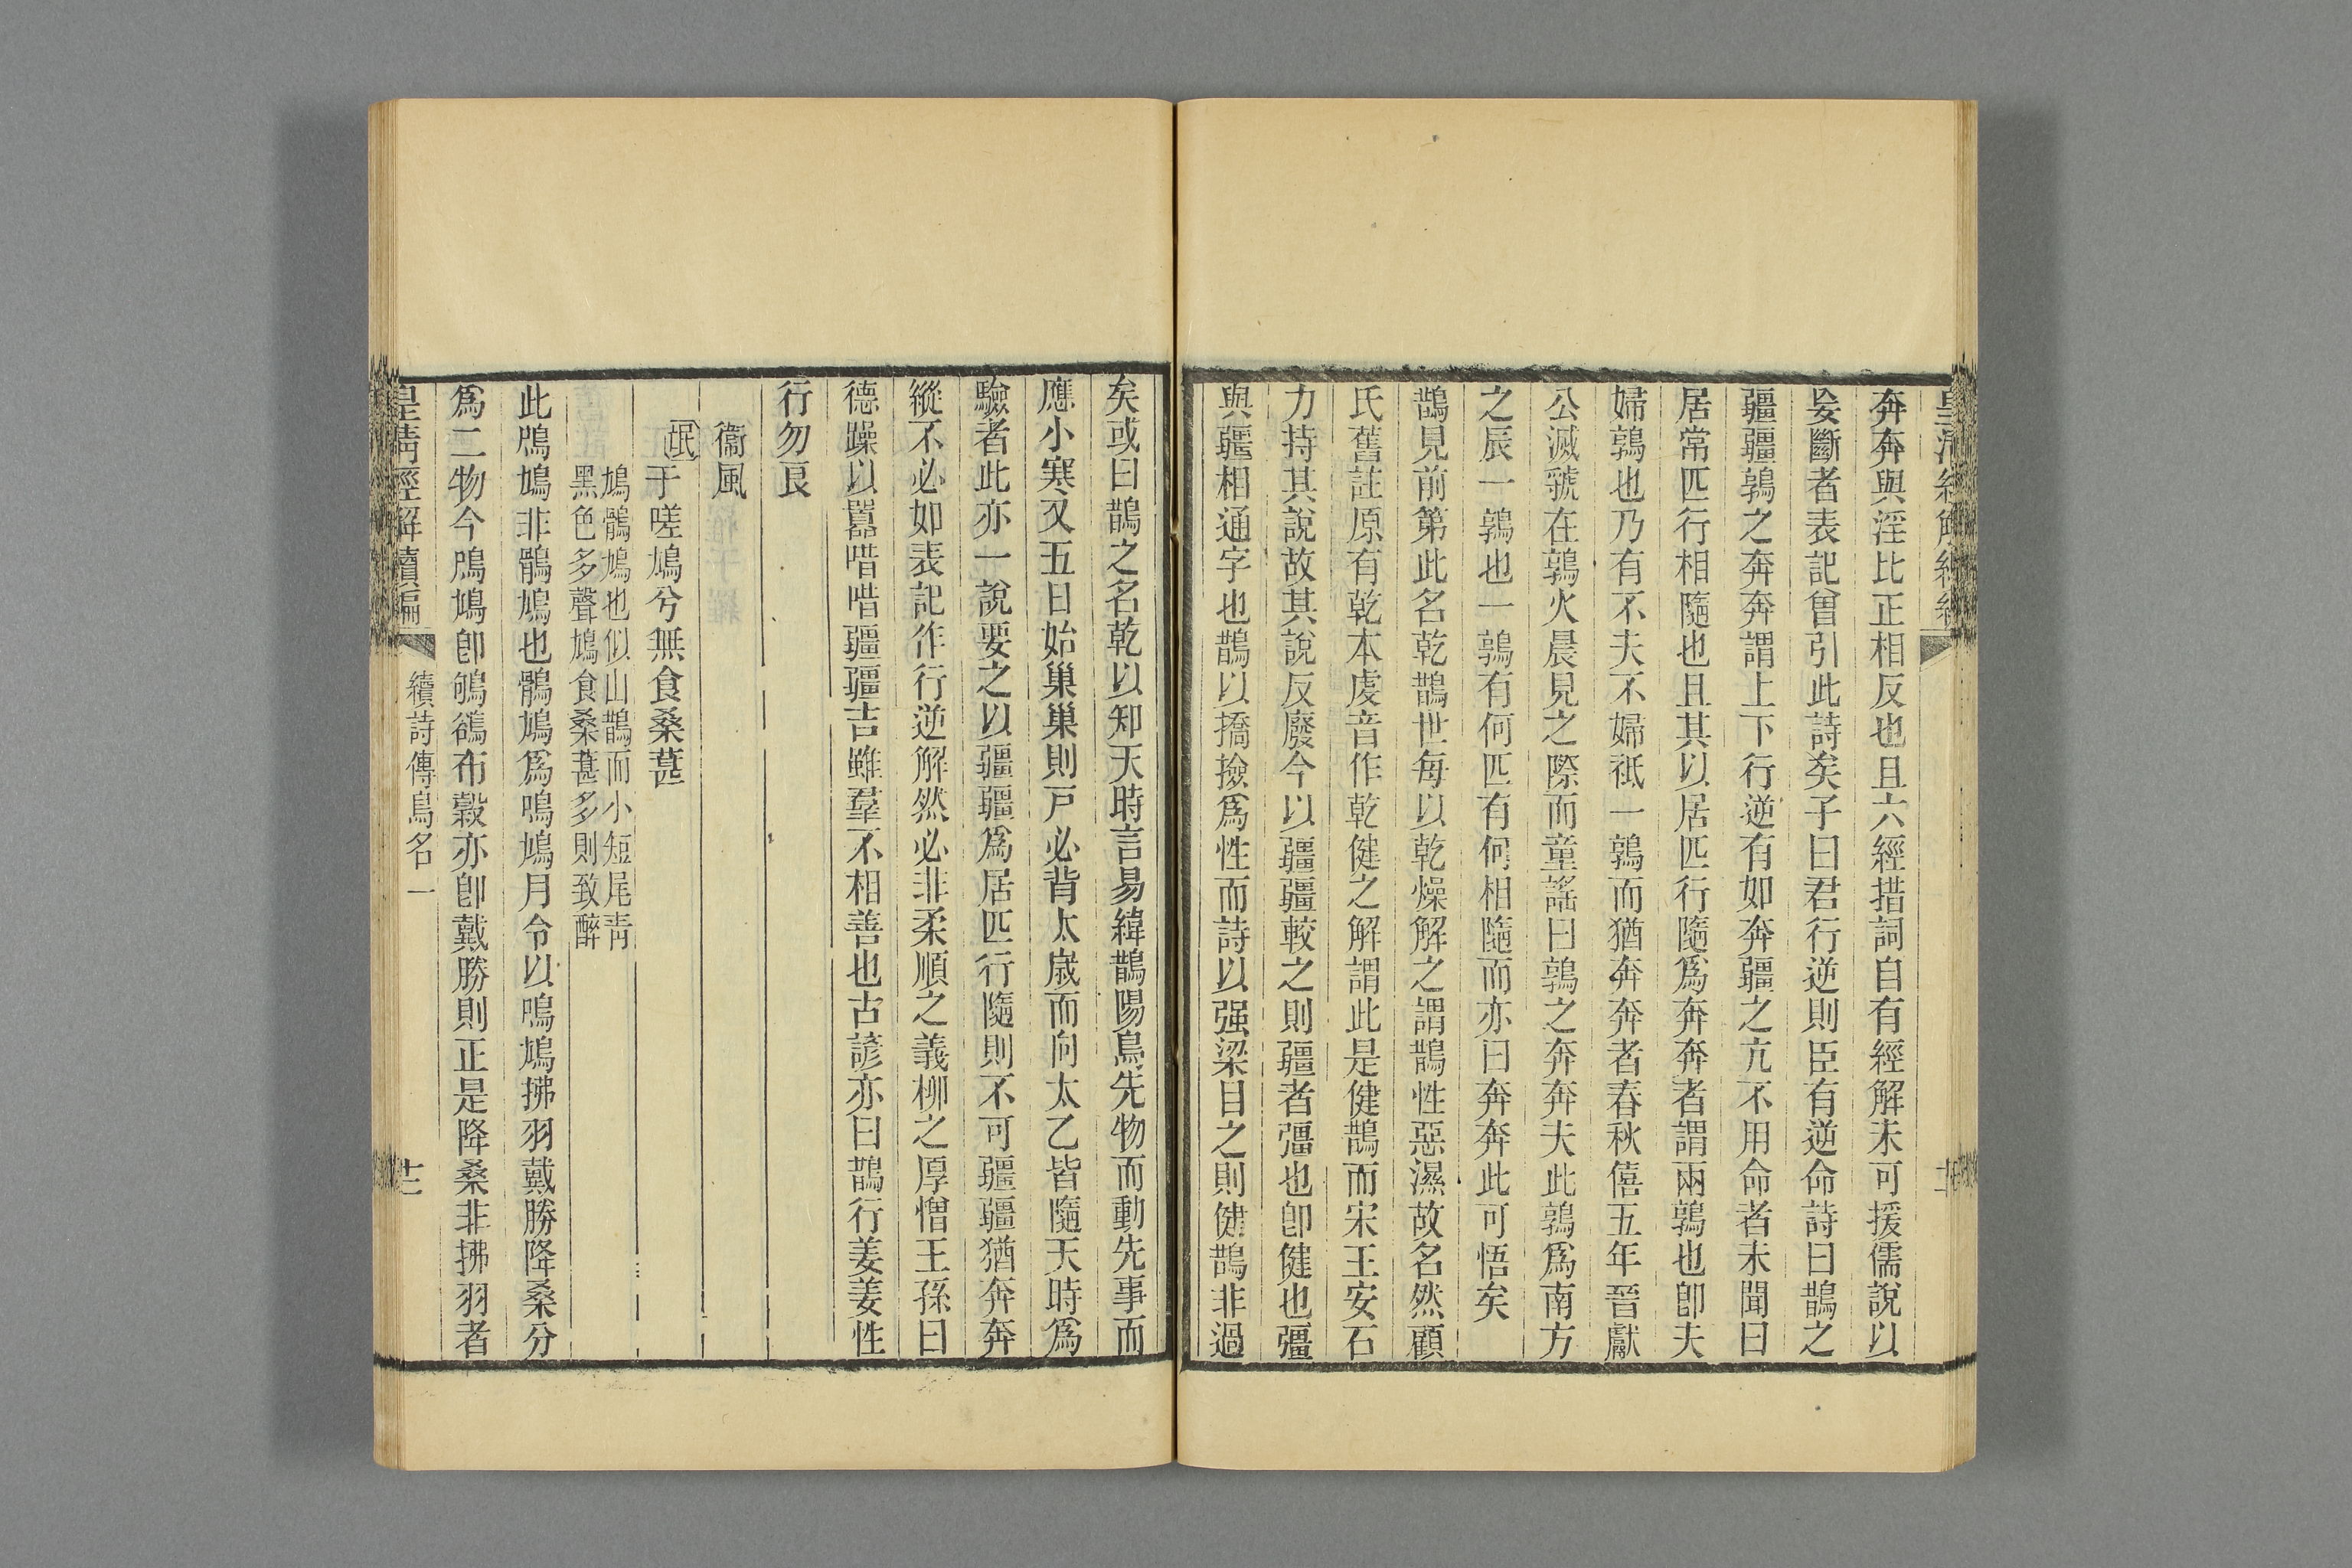 奔奔與淫比正相反也且六經措詞自有經解未可援儒說以
妄斷者表記曾引此詩矣子曰君行逆則臣有逆命詩曰鵲之
疆疆鶉之奔奔謂上下行逆有如奔疆之亢不用命者未聞曰
居常匹行相隨也且其以居匹行隨爲奔奔者謂兩鶉也卽夫
婦鶉也乃有不夫不婦祗一鶉而猶奔奔者春秋僖五年晉獻
公滅虢在鶉火晨見之際而童謠曰鶉之奔奔夫此鶉爲南方
之辰一鶉也一鶉有何匹有何相隨而亦曰奔奔此可悟矣
鵲見前第此名乾鵲世每以乾燥解之謂鵲性惡濕故名然顧
氏舊註原有乾本虔音作乾健之解謂此是健鵲而宋王安石
力持其說故其說反廢今以疆疆較之則疆者彊也卽健也彊
與疆相通字也鵲以撟撿爲性而詩以强梁目之則健鵲非過
矣或曰鵲之名乾以知天時言易緯鵲陽鳥先物而動先事而
應小寒又五日始巢巢則戸必背太歲而向太乙皆隨天時爲
驗者此亦一說要之以疆疆爲居匹行隨則不可疆疆猶奔奔
縱不必如表記作行逆解然必非柔順之義柳之厚憎王孫曰
德躁以囂唶唶疆疆吉雖羣不相善也古諺亦曰鵲行姜姜性
行勿良
衞風
氓于嗟鳩兮無食桑葚
鳩鶻鳩也似山鵲而小短尾靑
黑色多聲鳩食桑葚多則致醉
此鳲鳩非鶻鳩也鶻鳩爲鳴鳩月令以鳴鳩拂羽戴勝降桑分
爲二物今鳲鳩卽鴝鵒布穀亦卽戴勝則正是降桑非拂羽者
皇清經解續編
續詩傳鳥名一
十二